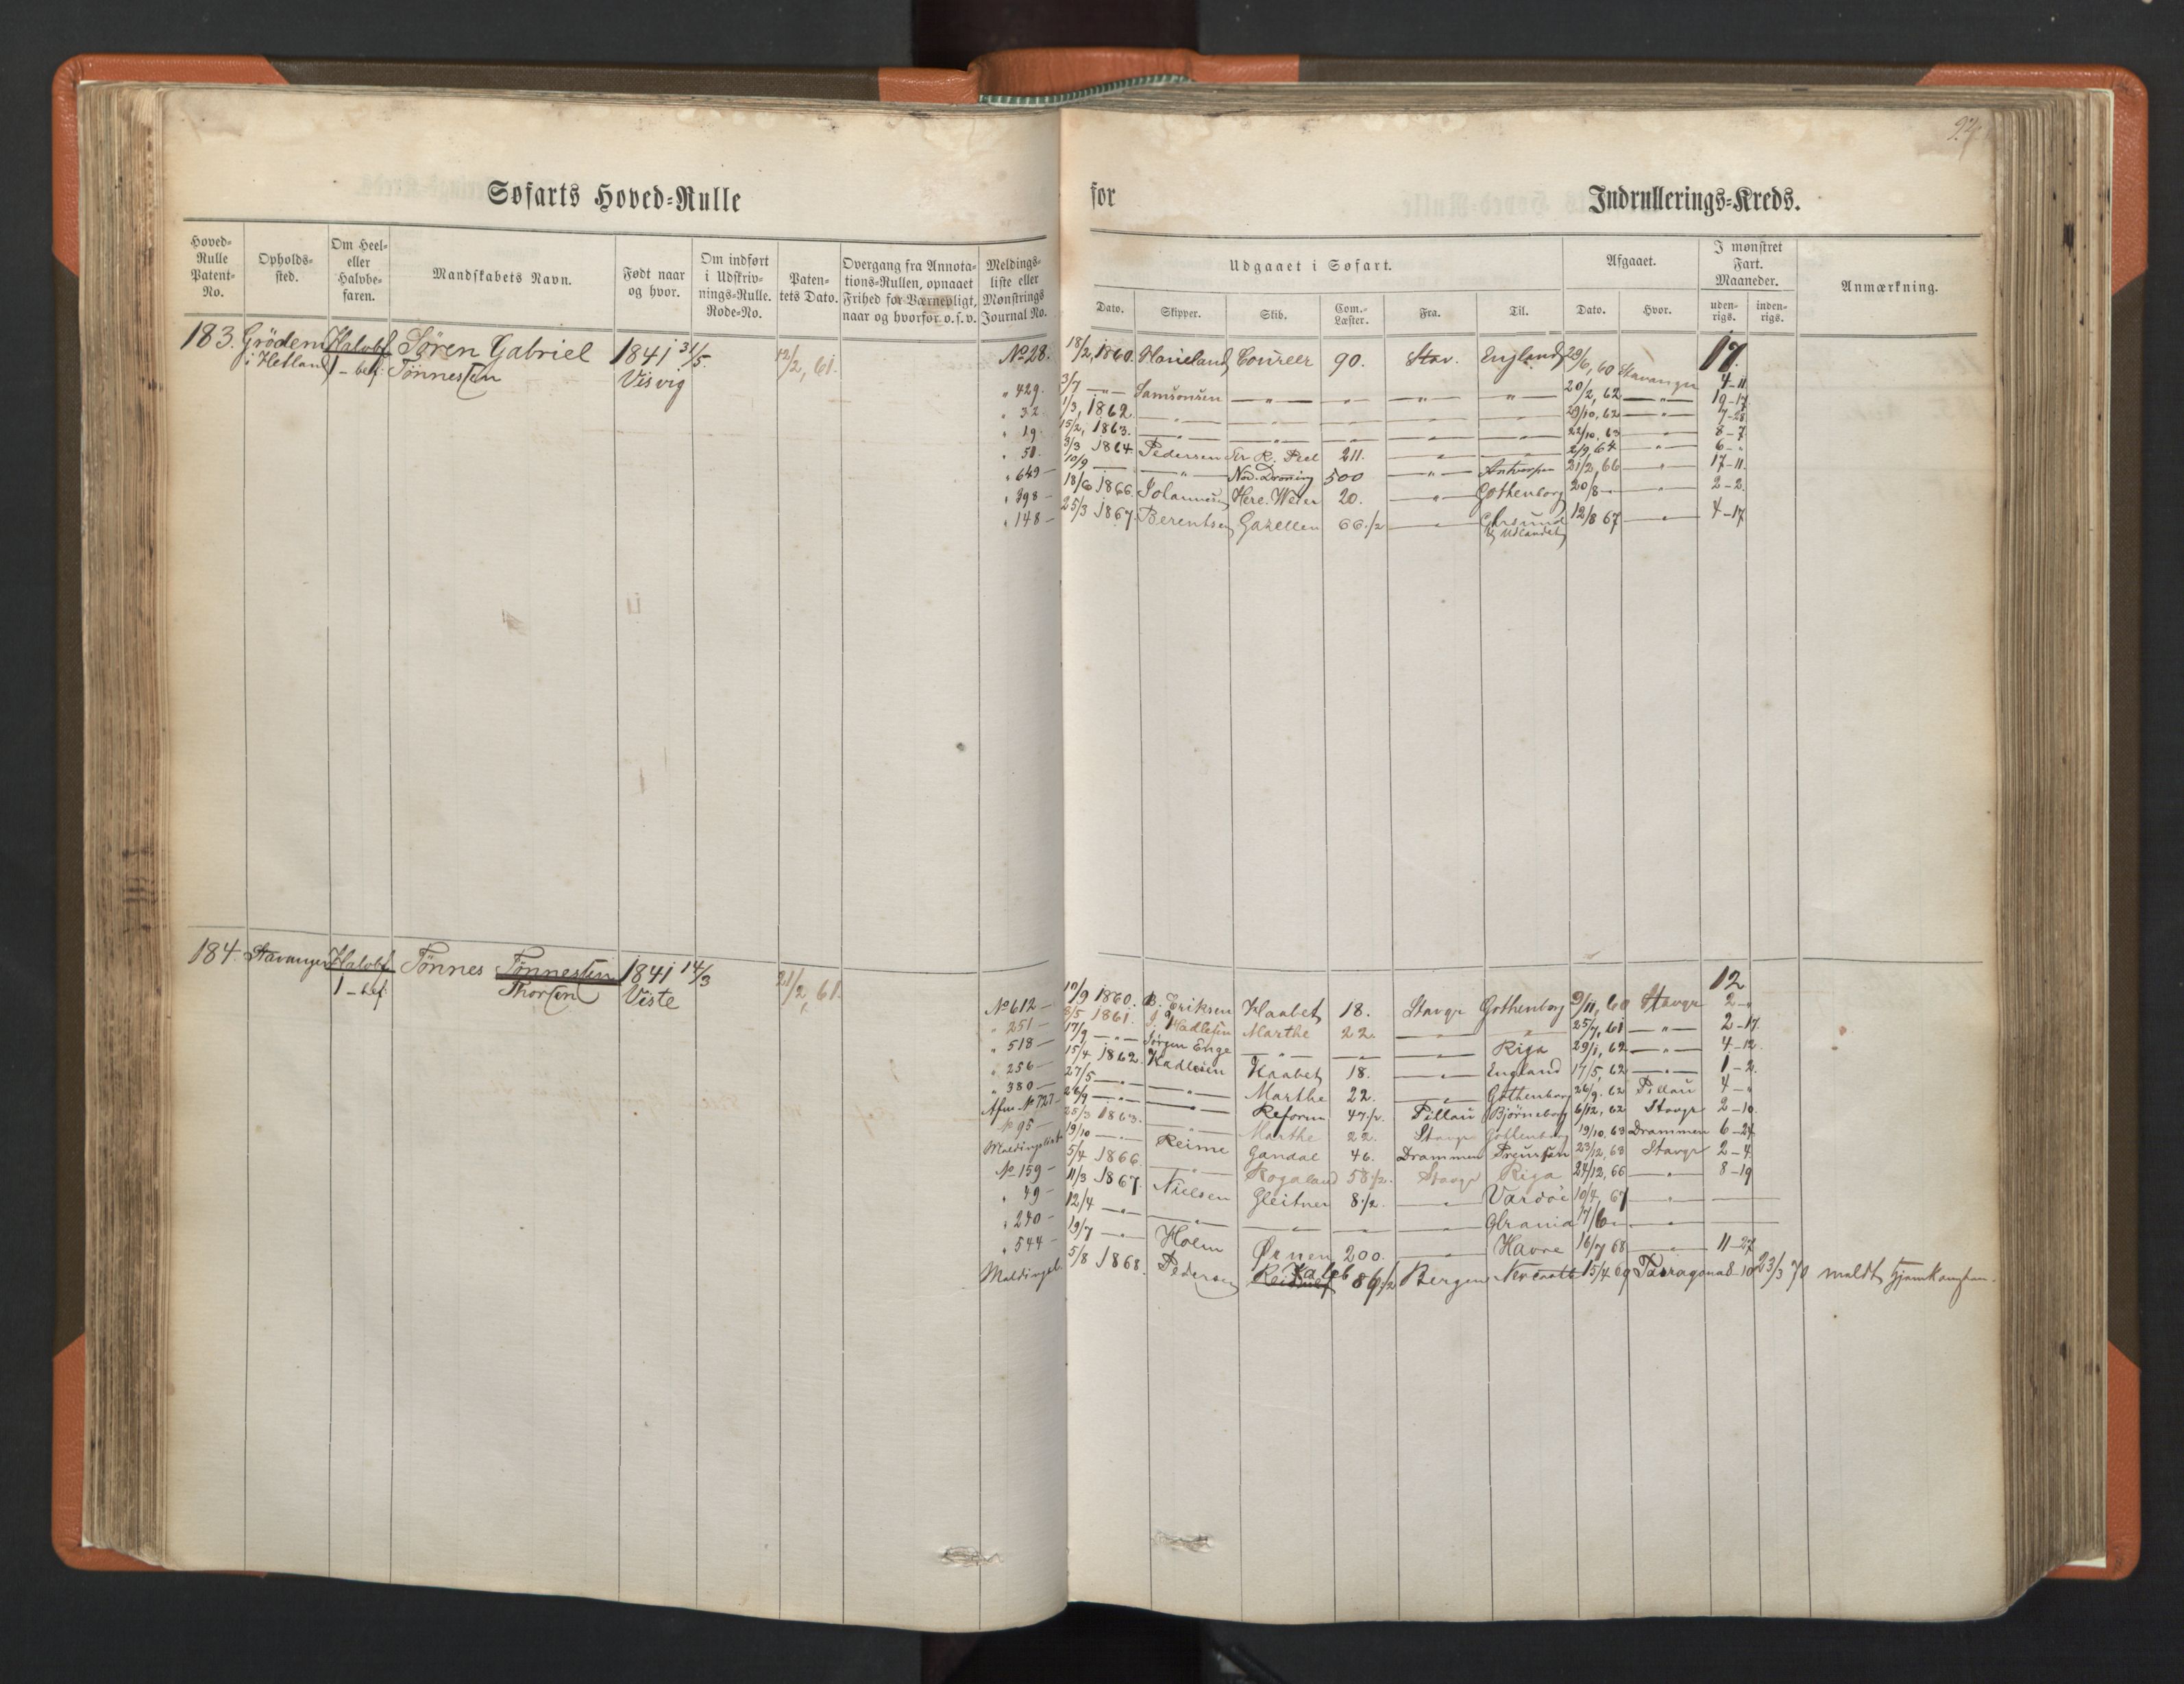 Søfarts Hoved-Rulle
for Indrullerings-Kreds.
Hoved-Rulle Patent-No. Opholds-sted. Om Heel- eller Halvbe-faren. Mandskabets Navn. Født naar og hvor. Om indført i Udskriv-nings-Rulle. Rode-No. Paten-tets Dato. Overgang fra Annota-tions-Rullen, opnaaet Frihed for Værnepligt, naar og hvorfor o. s. v. Meldings-liste eller Mønstrings Journal No.
Udgaaet i Søfart. Afgaaet. I mønstret Fart. Maaneder. Anmærkning.
Dato. Skipper. Skib. Com.-Læster. Fra. Til. Dato. Hvor. uden-rigs. inden-rigs.
183. Grödem Halvbf. Sören Gabriel 1841 31/5. 12/2, 61. No 28. 18/2, 1860. Coureer 90. Stav. England 29/6, 60 Stavanger 17.
i Hetland 1 - bef: Tönnessen Visvig
" 429. 3/7 — " — Samsonsen — " — — " — — " — " 20/2, 62 — " — 4-11
" 32. 1/3, 1862. — " — — — — — 29/10, 62 — " — 19-17
" 19. 15/2, 1863. — " — — " — — — — 22/10, 63 — " — 7-28
" 50. 3/3 1864 Pedersen Sir R. Peel 211. — " — — 2/9, 64 — " — 8-7
" 649 — 10/9 — — " — Nod. Droning 500 — " — Antverpen 21/2, 66 — " — 6-"
" 398 — 18/6 1866. Johannesen Here. Weier 20. — " — Gothenborg 20/8 — — " — 17-11.
" 148 — 25/3 1867. Berentsen Gazellen 66 1/2 — " — Egersund 12/8 67 — " — 2-2.
& Udlandet 4-17
184. Stavanger Halvbf. Tönnes Tönnessen 1841 14/3 21/2, 61. 12
1 - bef: Thorsen Viste
No 612 — 10/9 1860. B. Eriksen Haabet 18. Stavgr Gothenborg 9/11, 60 Stavgr 2-"
" 251 — 8/5 1861. J. Hadlesen Marthe 22. — " — " 25/7, 61 — " — 2-17.
" 518 — 17/9 — " — Jørgen Enge — " — — " — — " — Riga 29/1, 62 — " — 4-12
" 256 — 15/4 1862. Hadlesen Haabet 18. — " — England 17/5, 62 — " — 1-2.
" 380 — 27/5 — " — — " — Marthe 22. — " — Gothenborg 26/9. 62 Pillau 4-"
Afm No 727 — 26/9 — " — — " — Reform 47 1/2. Pillau Björneborg 6/12, 62 Stavgr 2-10.
No 95 — 25/3 1863. — " — Marthe 22. Stavgr Gothenborg 19/10. 63 Drammen 6-24
Meldingsliste 19/10 — " — Reime Gandal 46. Drammen Preussen 23/12, 63 Stavgr 2-4.
No 159 — 5/4 1866. — " — Rogaland 58 1/2. Stavgr Riga 24/12, 66 — " — 8-19
" 49 — 11/3 1867. Nielsen Gleitner 8 1/2. — " — Vardöe 10/4, 67 — " — —
" 240 — 12/4 — " — — " — — " — — — " — Grania 17/6 — — " — —
" 544 — 19/7 — " — Holm Ørnen 200. — " — Havre 16/7 68 — " — 11-27
Meldingsl. 5/8 1868. Pedersen Kaleb 86 1/2 Bergen Newcastle 15/4 69 Tarragona 8-10 23/3 70 meldt hjemkommen.